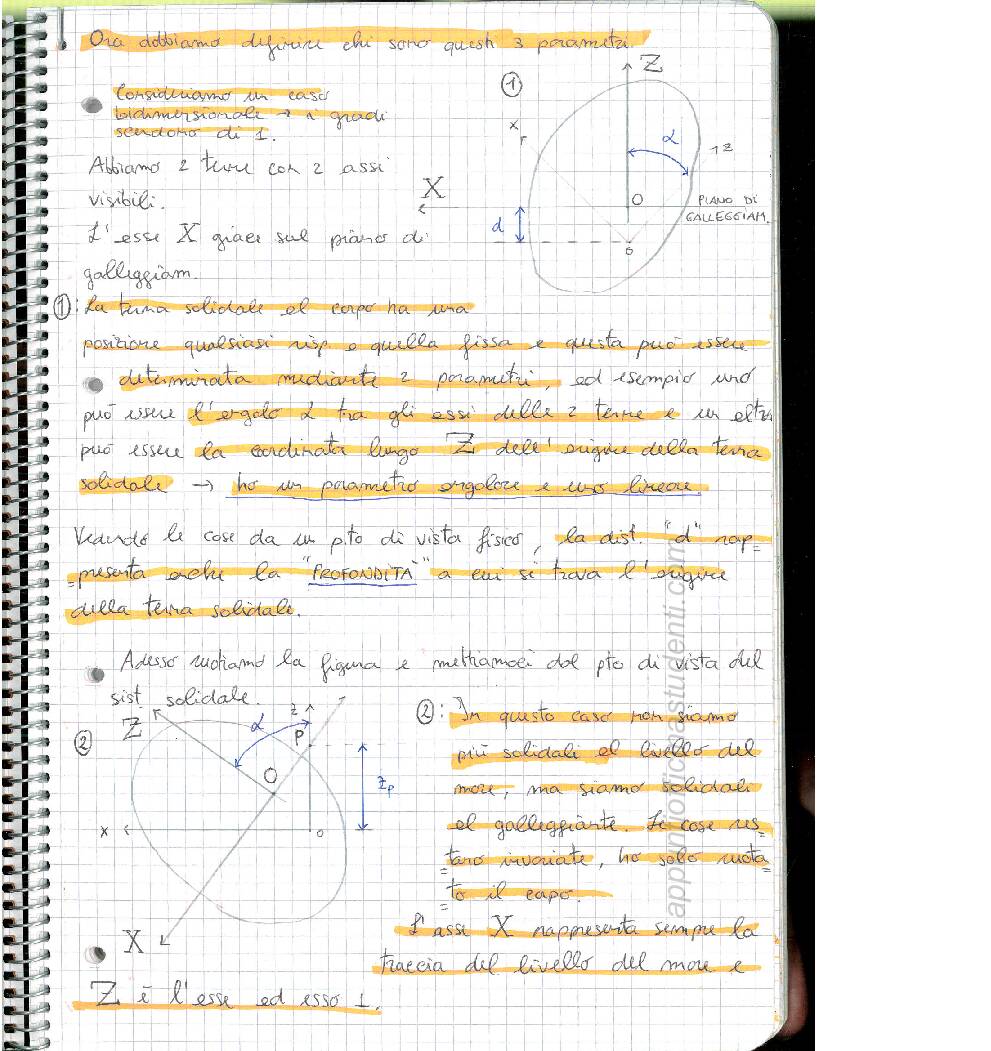 Ora dobbiamo definire chi sono questi 3 parametri.
①
Z
Consideriamo un caso
bidimensionale → i gradi
scendono di 1.
x
α
z
Abbiamo 2 terne con 2 assi
visibili.
X
O
PIANO DI
GALLEGGIAM.
d
o
L'asse X giace sul piano di
galleggiam.
①: La terna solidale al corpo ha una
posizione qualsiasi risp. a quella fissa e questa può essere
determinata mediante 2 parametri, ad esempio uno
può essere l'angolo α tra gli assi delle 2 terne e un altro
può essere la coordinata lungo Z dell'origine della terna
solidale → ho un parametro angolare e uno lineare.
Vedendo le cose da un pto di vista fisico, la dist. "d" rap=
=presenta anche la "PROFONDITÀ" a cui si trova l'origine
della terna solidale.
Adesso ruotiamo la figura e mettiamoci dal pto di vista del
sist. solidale.
②
Z
α
z
P
O
zp
x
o
X
②: In questo caso non siamo
più solidali al livello del
mare, ma siamo solidali
al galleggiante. Le cose res=
=tano invariate, ho solo ruota
=to il capo.
L'assi X rappresenta sempre la
traccia del livello del mare e
Z è l'asse ad esso ⊥.
appuntiofficinastudenti.com